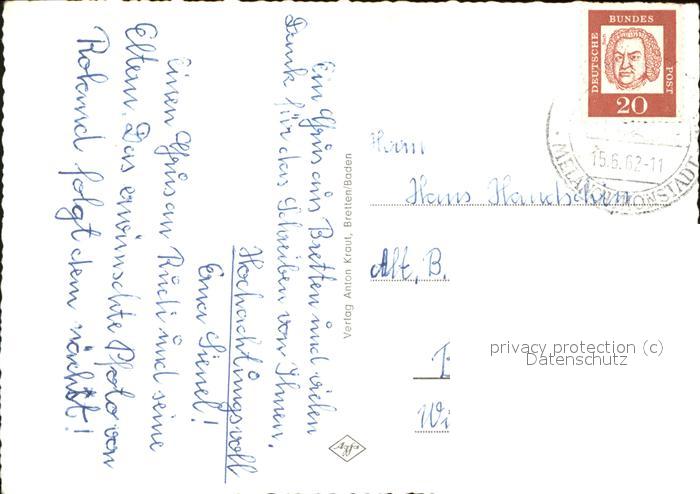 Ein Gruß aus Bretten und vielen
Dank für das Schreiben von Ihnen.
Hochachtungsvoll
Erna Siesel!
Einen Gruß an Rudi und seine
Eltern. Das erwünschte Photo von
Roland folgt demnächst!
Verlag Anton Kraut, Bretten/Baden
Agfa
DEUTSCHE
BUNDES
POST
20
15.6.62-11
MELANCHTHONSTADT
Herrn
Hans
Alt, B.
Wi
privacy protection (c)
Datenschutz